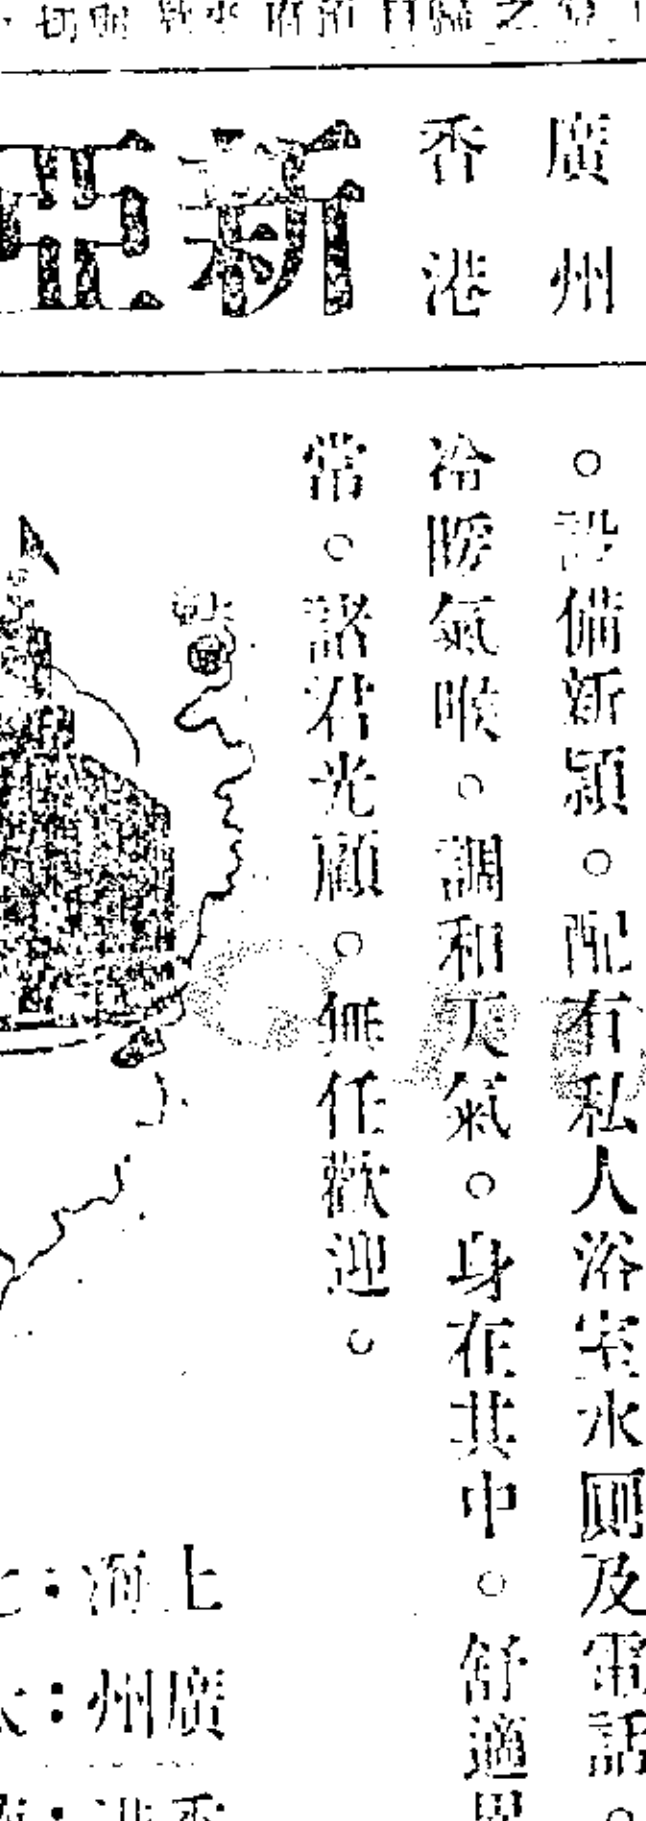 廣州
香港
新亞
。設備新穎。配有私人浴室水厠及電話。
冷暖氣喉。調和天氣。身在其中。舒適異
常。諸君光顧。無任歡迎。
上海：
廣州：
香港：